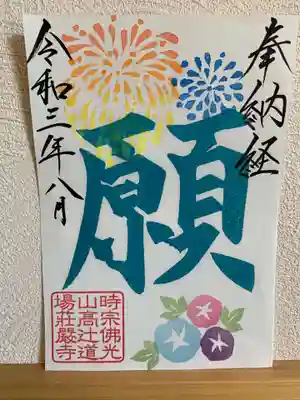 奉納経
願
令和三年八月
時宗佛光
山高辻道
場荘嚴寺